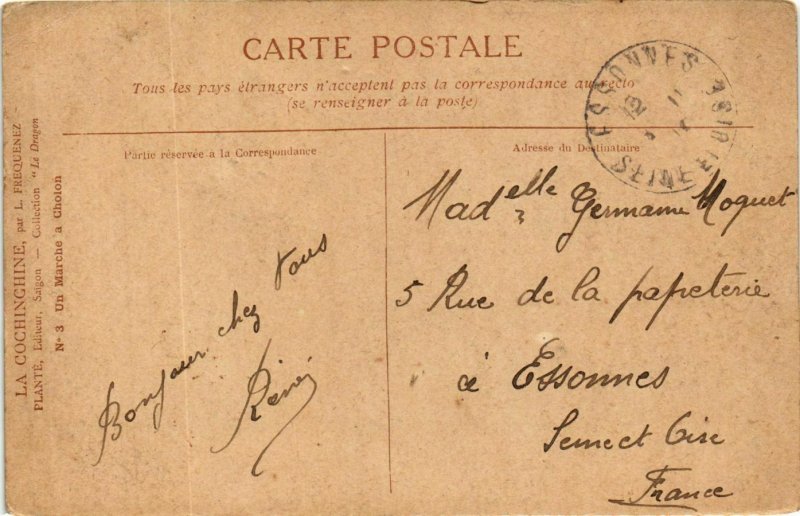 CARTE POSTALE
Tous les pays étrangers n'acceptent pas la correspondance au recto
(se renseigner à la poste)
Partie réservée à la Correspondance
Adresse du Destinataire
LA COCHINCHINE, par L. FREQUENEZ
PLANTÉ, Editeur, Saïgon — Collection "Le Dragon
N° 3 Un Marche a Cholon
Bonjour chez vous
René
Madelle Germaine Moquet
5 Rue de la papeterie
à Essonnes
Seine et Oise
France
ESSONNES
SEINE ET OISE
12
11